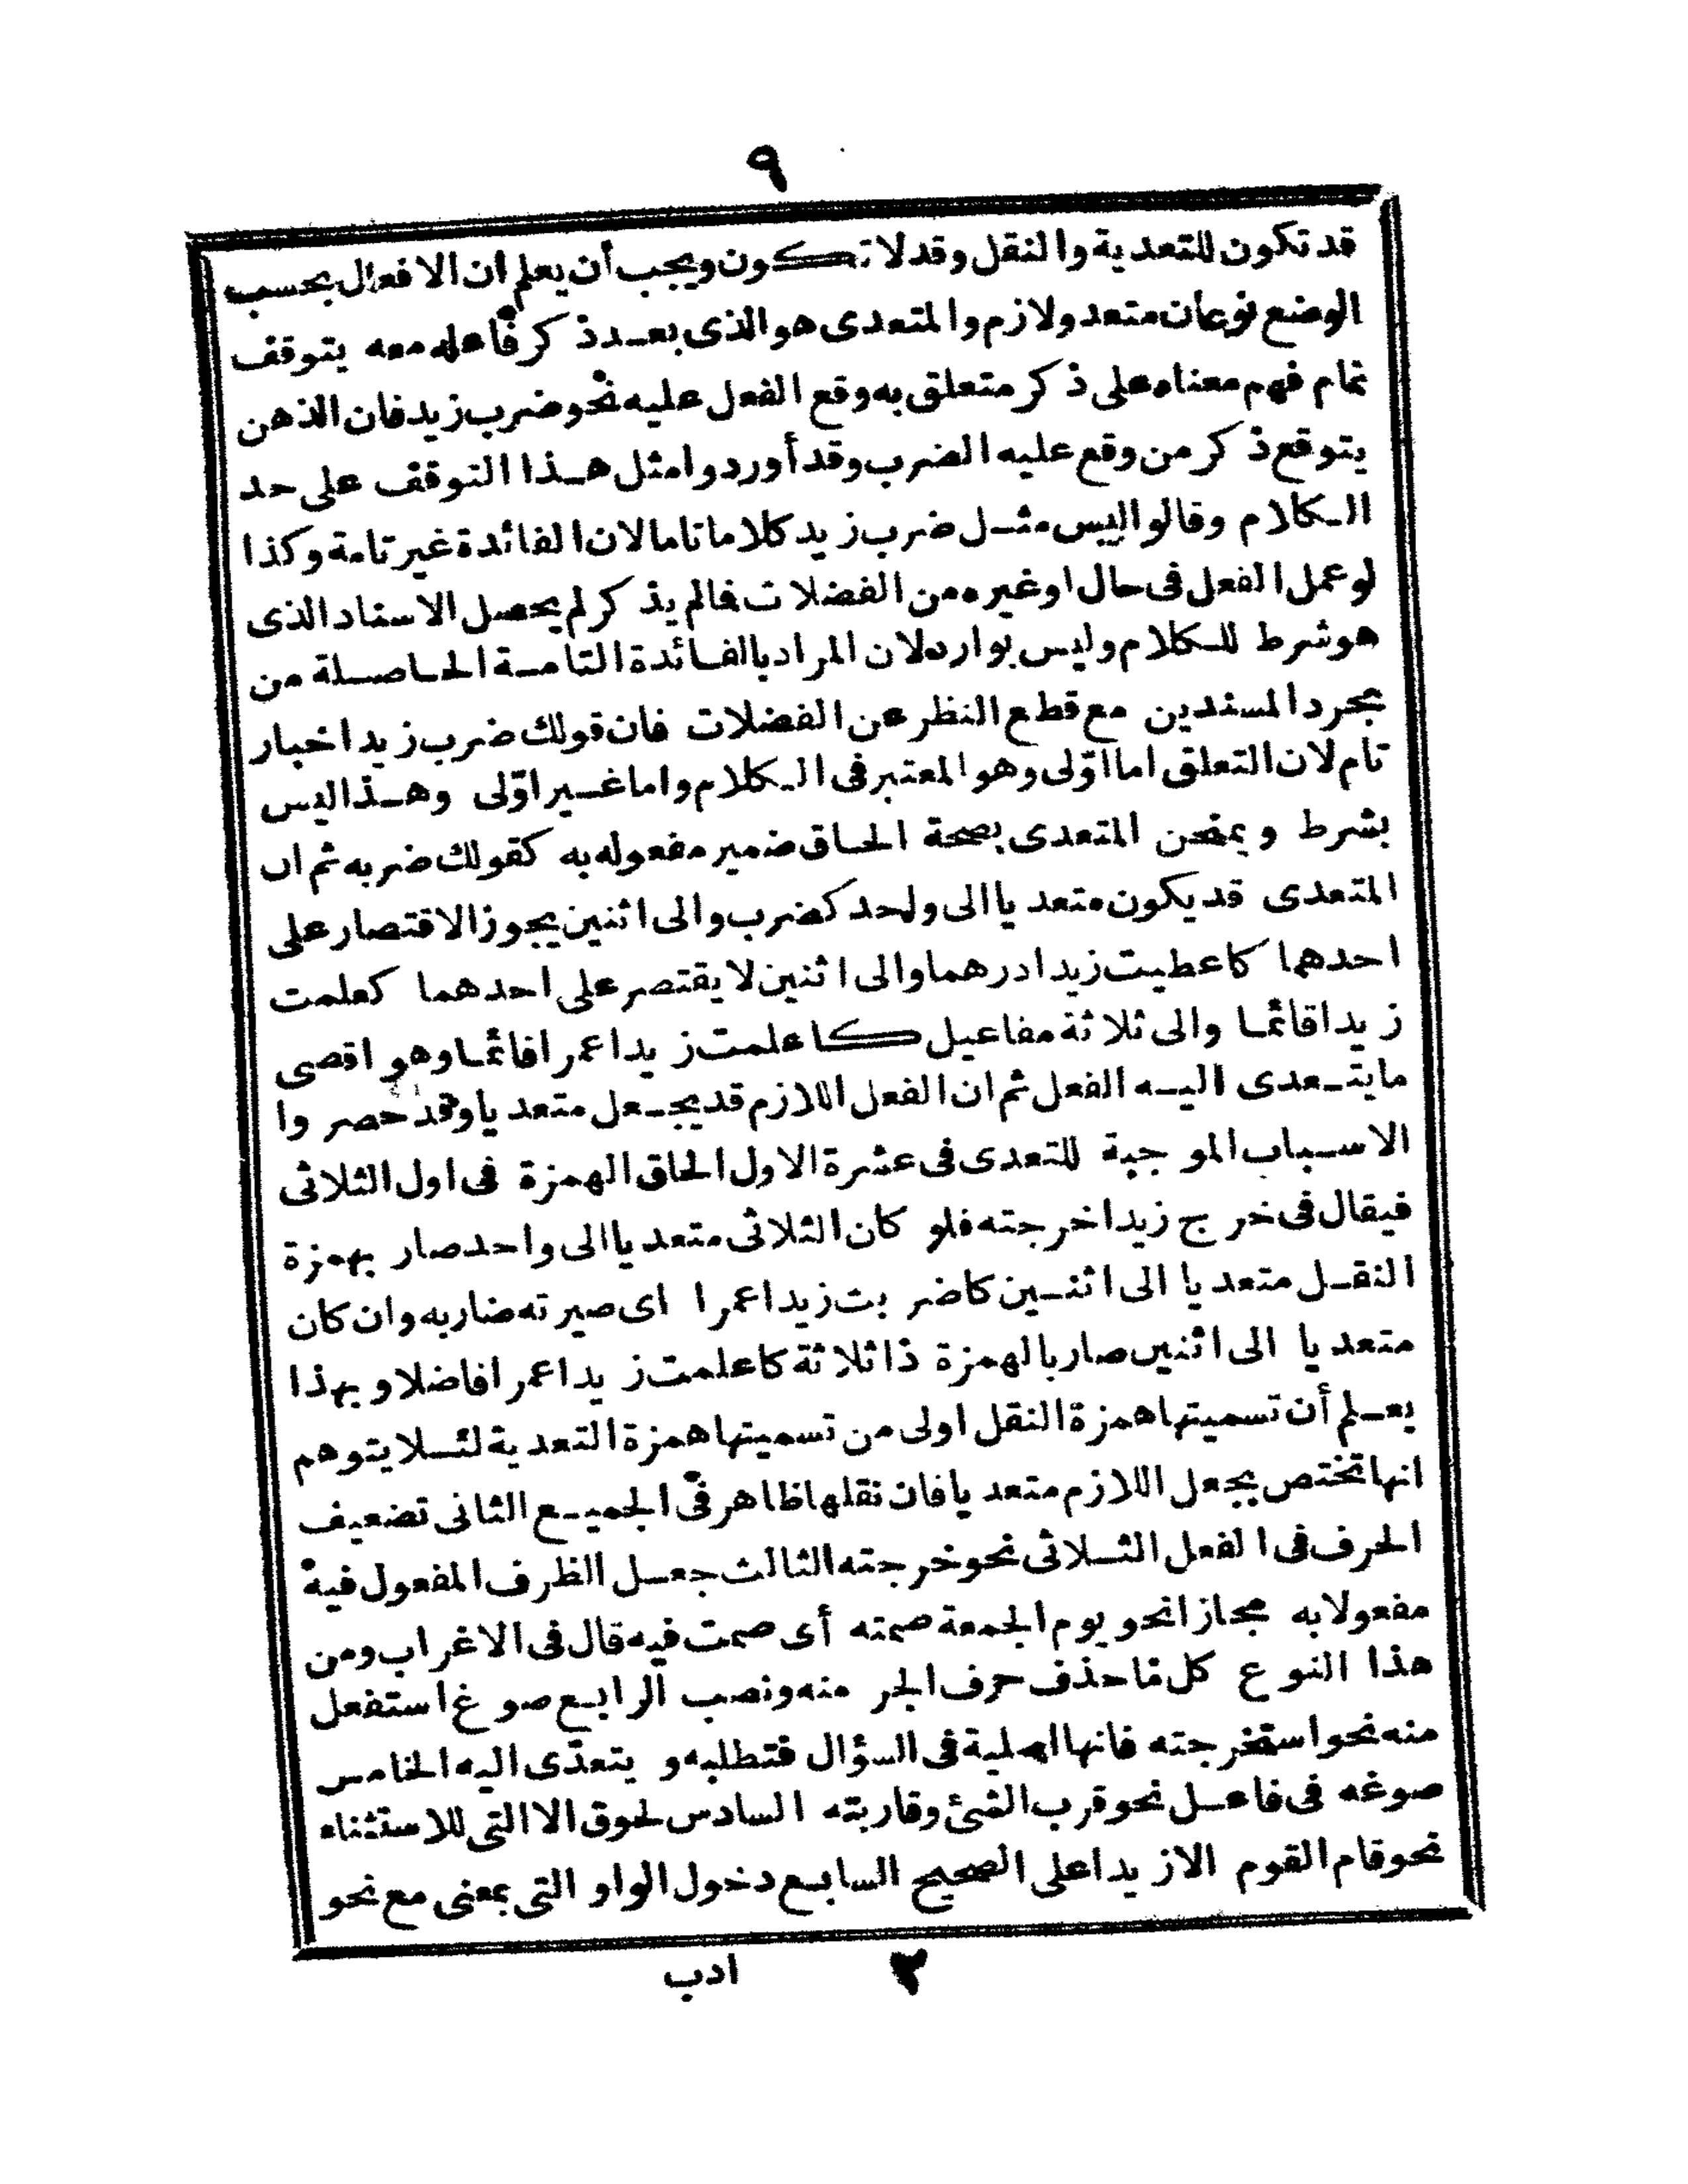 ٩
قد تكون للتعدية والنقل وقد لا تكون ويجب أن يعلم ان الافعال بحسب
الوضع نوعان متعد ولازم والمتعدى هو الذى بعد ذكر فاعله معه يتوقف
تمام فهم معناه على ذكر متعلق به وقع الفعل عليه نحو ضرب زيد فان الذهن
يتوقع ذكر من وقع عليه الضرب وقد أوردوا مثل هذا التوقف على حد
الكلام وقالوا ليس مثل ضرب زيد كلاما تاما لان الفائدة غير تامة وكذا
لو عمل الفعل فى حال او غيره من الفضلات فالم يذكر لم يحصل الاسناد الذى
هو شرط للكلام وليس بوارد لان المراد بالفائدة التامة الحاصلة من
مجرد المسندين مع قطع النظر عن الفضلات فان قولك ضرب زيد اخبار
تام لان التعلق اما اوّلى وهو المعتبر فى الكلام واما غير اوّلى وهذا ليس
بشرط ويمتحن المتعدى بصحة الحاق ضمير مفعوله به كقولك ضربه ثم ان
المتعدى قد يكون متعديا الى واحد كضرب والى اثنين يجوز الاقتصار على
احدهما كاعطيت زيدا درهما والى اثنين لا يقتصر على احدهما كعلمت
زيدا قائما والى ثلاثة مفاعيل كاعلمت زيدا عمرا قائما وهو اقصى
ما يتعدى اليه الفعل ثم ان الفعل اللازم قد يجعل متعديا وقد حصروا
الاسباب الموجبة للتعدى فى عشرة الاول الحاق الهمزة فى اول الثلاثى
فيقال فى خرج زيد اخرجته فلو كان الثلاثى متعديا الى واحد صار بهمزة
النقل متعديا الى اثنين كاضربت زيدا عمرا اى صيرته ضاربه وان كان
متعديا الى اثنين صار بالهمزة ذا ثلاثة كاعلمت زيدا عمرا فاضلا وبهذا
يعلم أن تسميتها همزة النقل اولى من تسميتها همزة التعدية لئلا يتوهم
انها تختص بجعل اللازم متعديا فان نقلها ظاهر فى الجميع الثانى تضعيف
الحرف فى الفعل الثلاثى نحو خرجته الثالث جعل الظرف المفعول فيه
مفعولا به مجازا نحو يوم الجمعة صمته أى صمت فيه قال فى الاغراب ومن
هذا النوع كل ما حذف حرف الجر منه ونصب الرابع صوغ استفعل
منه نحو استخرجته فانها اصلية فى السؤال فتطلبه و يتعدّى اليه الخامس
صوغه فى فاعل نحو قرب الشئ وقاربته السادس لحوق الا التى للاستثناء
نحو قام القوم الا زيدا على الصحيح السابع دخول الواو التى بمعنى مع نحو
٢ ادب